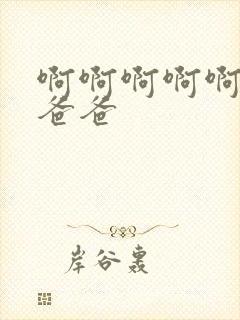 啊啊啊啊啊
爸爸
岸谷轰